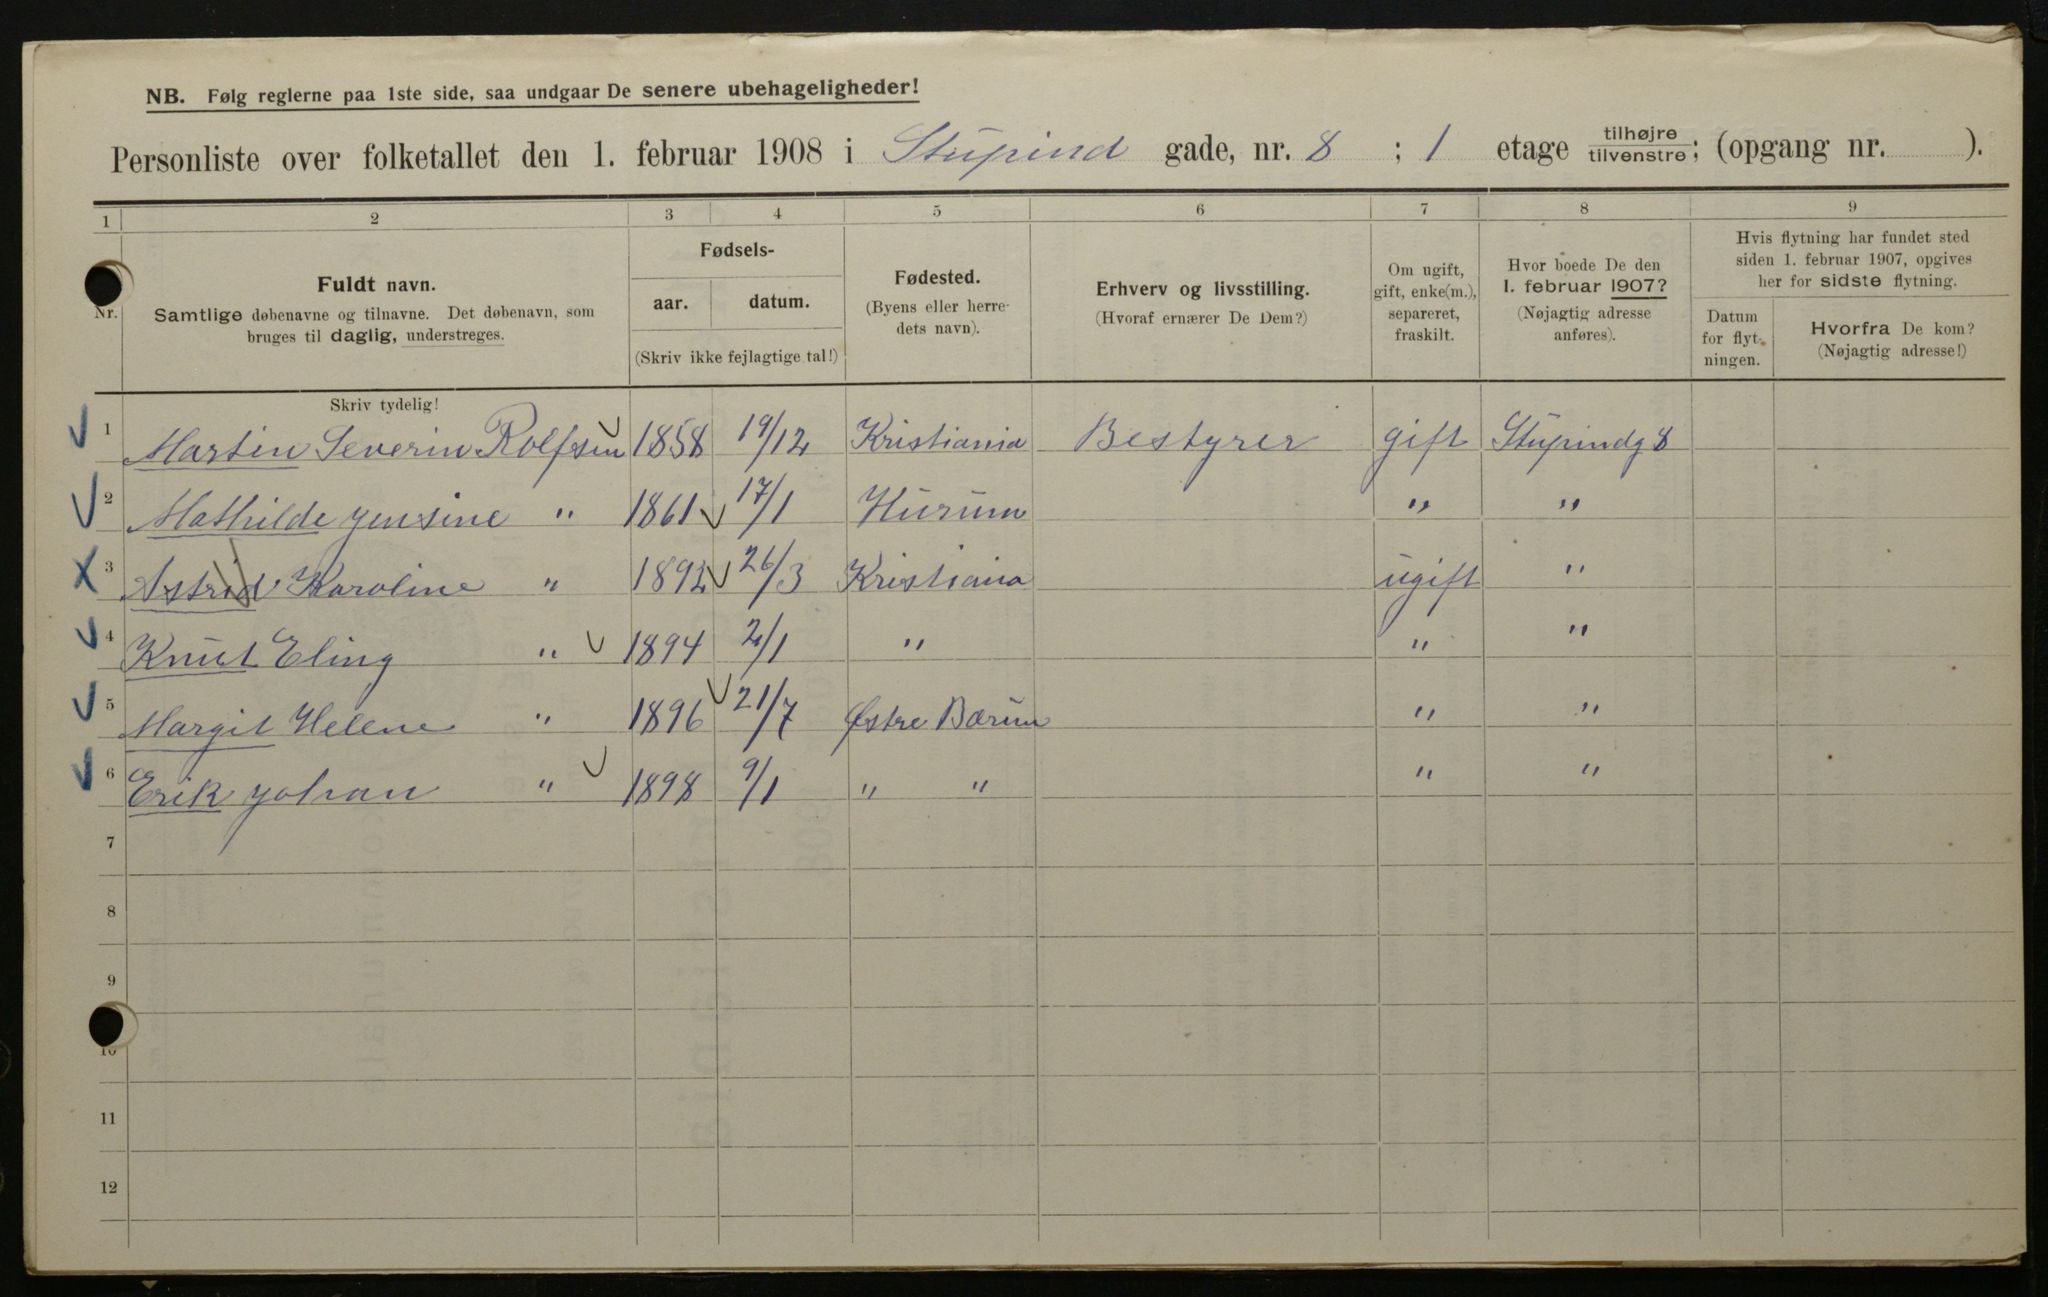 NB. Følg reglerne paa 1ste side, saa undgaar De senere ubehageligheder!
Personliste over folketallet den 1. februar 1908 i Stupind gade, nr. 8 ; 1 etage tilhøjre tilvenstre; (opgang nr. ).
1 2 3 4 5 6 7 8 9
Nr.
Fuldt navn.
Samtlige døbenavne og tilnavne. Det døbenavn, som
bruges til daglig, understreges.
Fødsels-
aar. datum.
(Skriv ikke fejlagtige tal!)
Fødested.
(Byens eller herre-
dets navn).
Erhverv og livsstilling.
(Hvoraf ernærer De Dem?)
Om ugift,
gift, enke(m.),
separeret,
fraskilt.
Hvor boede De den
1. februar 1907?
(Nøjagtig adresse
anføres).
Hvis flytning har fundet sted
siden 1. februar 1907, opgives
her for sidste flytning.
Datum
for flyt-
ningen.
Hvorfra De kom?
(Nøjagtig adresse!)
Skriv tydelig!
1 Martin Severin Rolfsen 1858 19/12 Kristiania Bestyrer gift Stupindg 8
2 Mathilde Jensine " 1861 17/1 Hurum " "
3 Astrid Karoline " 1892 26/3 Kristiana ugift "
4 Knut Eling " 1894 2/1 " " "
5 Margit Helene " 1896 21/7 Østre Bærum " "
6 Erik Johan " 1898 9/1 " " " "
7
8
9
10
11
12